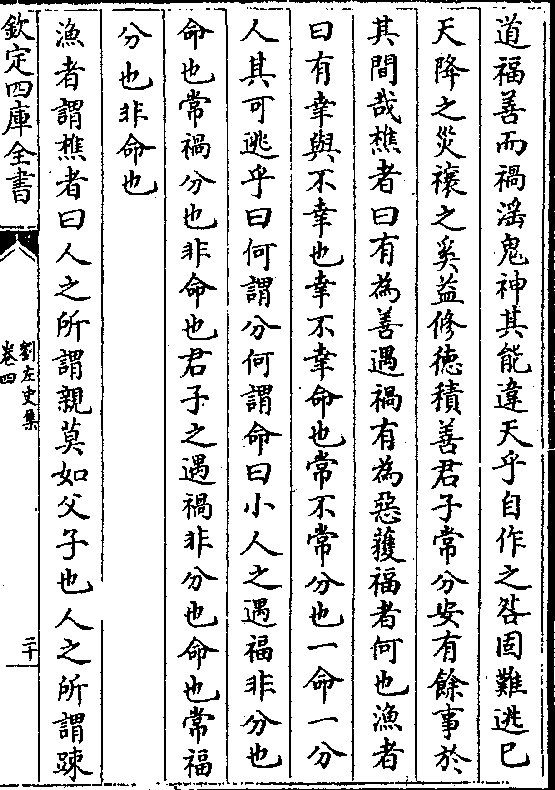 道福善而禍滛鬼神其能違天乎自作之咎固難逃巳
天降之災禳之奚益修徳積善君子常分安有餘事於
其間哉樵者曰有為善遇禍有為惡獲福者何也漁者
曰有幸與不幸也幸不幸命也常不常分也一命一分
人其可逃乎曰何謂分何謂命曰小人之遇福非分也
命也常禍分也非命也君子之遇禍非分也命也常福
分也非命也
漁者謂樵者曰人之所謂親莫如父子也人之所謂踈
欽定四庫全書
劉左史集
卷四
二十